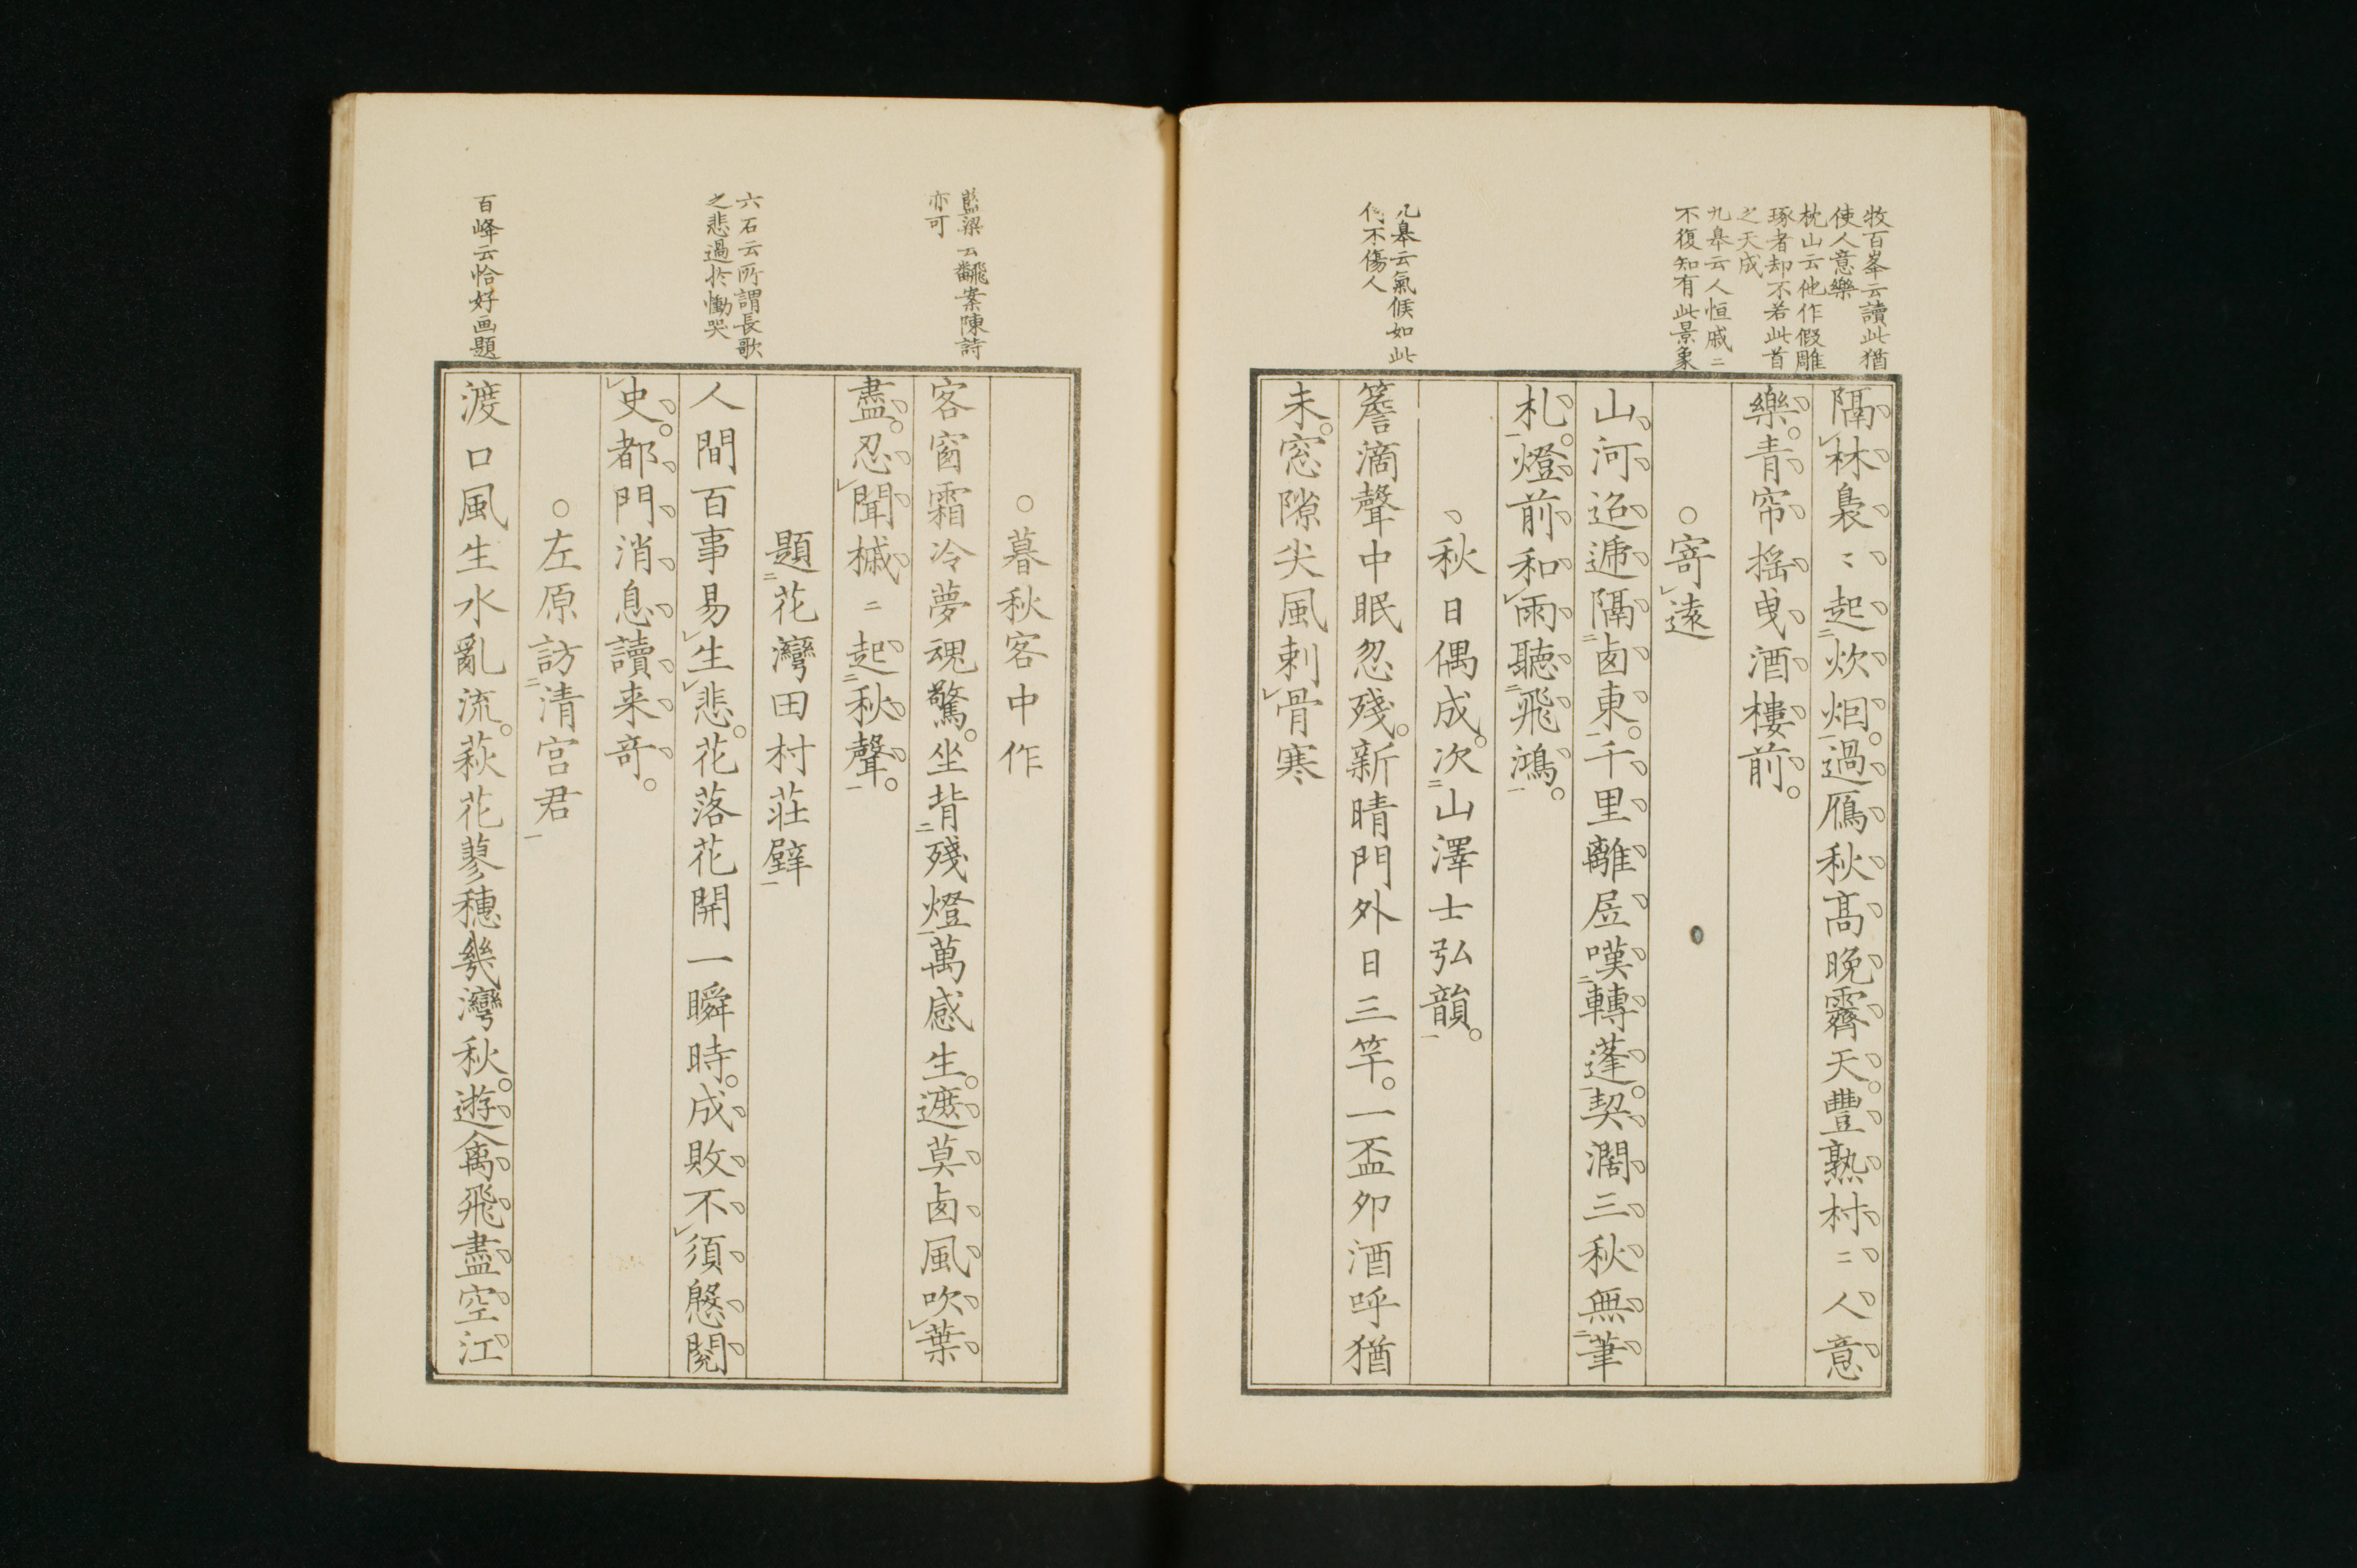 牧百峯云讀此猶
使人意樂
枕山云他作假雕
琢者却不若此首
之天成
九皋云人恒戚〻
不復知有此景象
隔林裊〻起炊烟。過鴈秋高晚霽天。豐熟村〻人意
樂。青帘搖曳酒樓前。
○寄遠
山河迢遞隔鹵東。千里離居嘆轉蓬。契濶三秋無筆
札。燈前和雨聽飛鴻。
九皋云氣候如此
何不傷人
、秋日偶成。次山澤士弘韻。
簷滴聲中眠忽殘。新晴門外日三竿。一盃卯酒呼猶
未。窓隙尖風刺骨寒
○暮秋客中作
藍梁云飜案陳詩
亦可
客窗霜冷夢魂驚。坐背殘燈萬感生。遮莫鹵風吹葉
盡。忍聞槭〻起秋聲。
題花灣田村莊壁
六石云所謂長歌
之悲過於慟哭
人間百事易生悲。花落花開一瞬時。成敗不須慇閱
史。都門消息讀来竒。
○左原訪清宮君
百峰云恰好画題
渡口風生水亂流。萩花蓼穗幾灣秋。遊禽飛盡空江